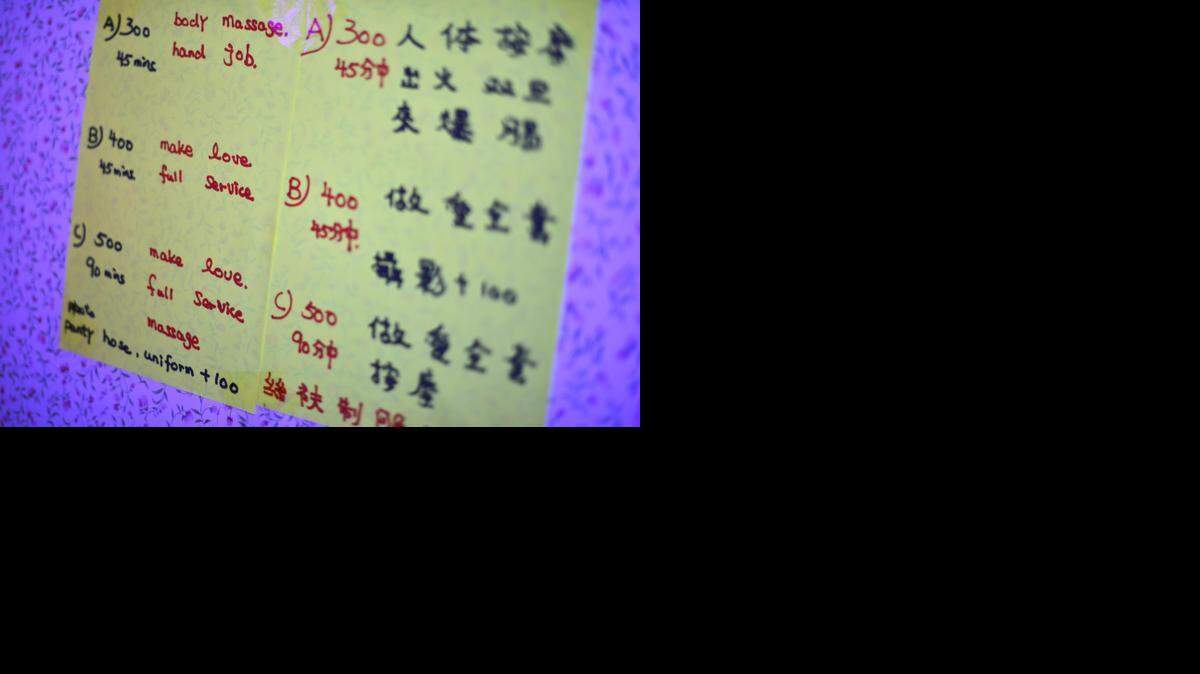 A) 300 body massage.
45 mins hand job.
B) 400 make love.
45 mins full service
C) 500 make love.
90 mins full service
massage
Photo
panty hose, uniform +100
A) 300 人体按摩
45分中 出火 双旦
夾爆
B) 400 做愛全套
45分中.
攝影+100
C) 500 做愛全套
90分中 按
絲袜制服